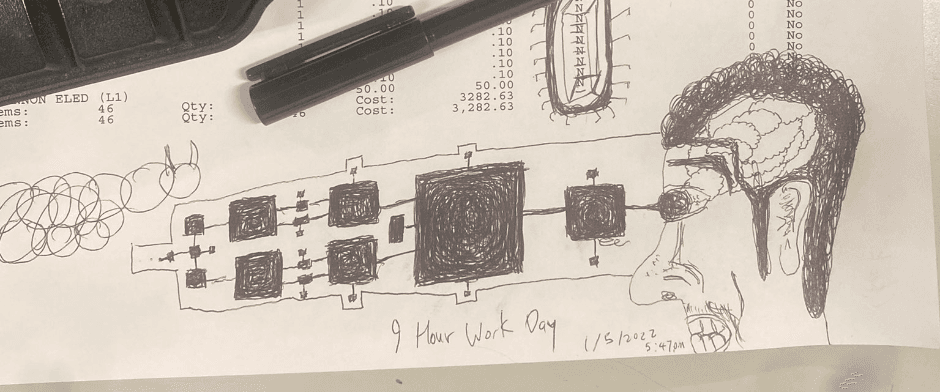 1 0 No
1 .10 0 No
1 .10 0 No
1 .10 0 No
.10 0 No
.10
50.00 50.00
RON ELED (L1) Cost: 3282.63
ems: 46 Qty: Cost: 3,282.63
ems: 46 Qty: 46
9 Hour Work Day 1/5/2022
5:47pm